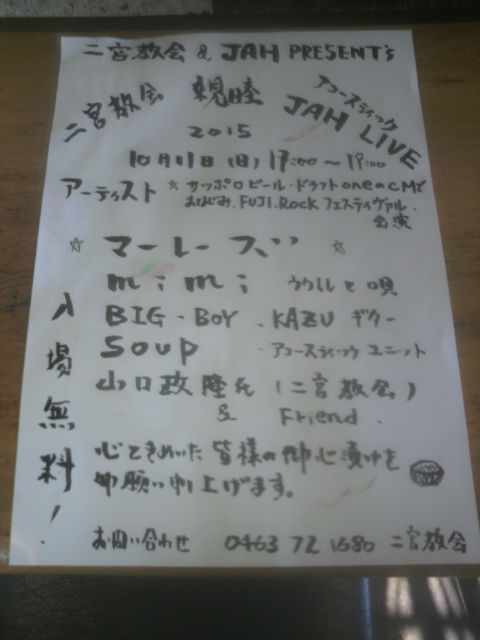 二宮教会 & JAH PRESENT's
二宮教会 親睦 アコースティック JAH LIVE
2015
10月11日(日) 17:00～19:00
アーティスト ☆サッポロビール・ドラフトoneのCMで
おなじみ.FUJI.Rock フェスティヴァル.
出演
☆ マーレーズ ☆
mimi ウクレレと唄
BIG-BOY .KAZU ギター
SOUP .アコースティック ユニット
山口政隆氏 (二宮教会)
& Friend.
入場無料!
心ときめいた皆様の御心漬けを
お願い申し上げます。
お問い合わせ 0463 72 1680 二宮教会